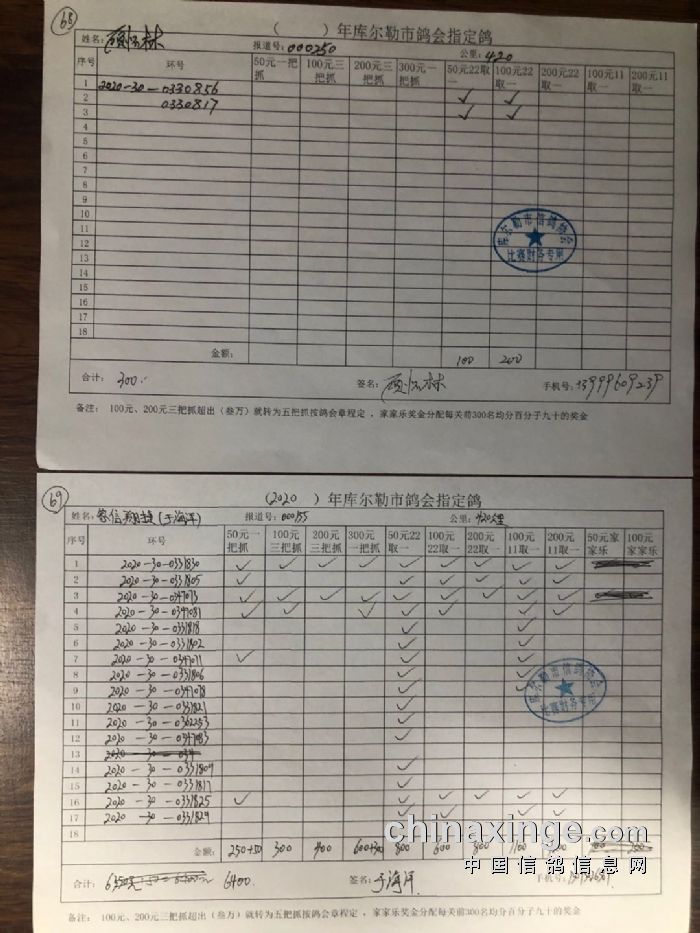 65
( )年库尔勒市鸽会指定鸽
姓名: 报道号: 000250 公里: 420
序号 环号 50元一把抓 100元三把抓 200元三把抓 300元一把抓 50元22取一 100元22取一 200元22取一 100元11取一 200元11取一
1 2020-30-0330856
2 0330817 ✓ ✓
3 ✓ ✓
4
5
6
7
8
9
10
11
12
13
14
15
16
17
18
库尔勒市信鸽协会
比赛财务专用
金额: 100 200
合计: 300. 签名: 手机号: 13999609239
备注: 100元、200元三把抓超出(叁万)就转为五把抓按鸽会章程定,家家乐奖金分配每关前300名均分百分子九十的奖金
69
(2020 )年库尔勒市鸽会指定鸽
姓名: (于海洋) 报道号: 000155 公里: 420公里
序号 环号 50元一把抓 100元三把抓 200元三把抓 300元一把抓 50元22取一 100元22取一 200元22取一 100元11取一 200元11取一 50元家家乐 100元家家乐
1 2020-30-0331830 ✓ ✓ ✓ ✓ ✓ ✓ ✓ ✓ ✓
2 2020-30-0331805 ✓ ✓ ✓ ✓ ✓ ✓
3 2020-30-0347073 ✓ ✓ ✓ ✓ ✓ ✓ ✓ ✓ ✓
4 2020-30-0347081 ✓ ✓ ✓ ✓ ✓ ✓ ✓
5 2020-30-0331818 ✓ ✓
6 2020-30-0331802 ✓ ✓
7 2020-30-0347071 ✓ ✓ ✓
8 2020-30-0331806 ✓ ✓
9 2020-30-0347078 ✓ ✓
10 2020-30-0331821 ✓
11 2020-30-0362253 ✓
12 2020-30-0347083 ✓
13
14 2020-30-0331809 ✓
15 2020-30-0331817 ✓
16 2020-30-0331825 ✓ ✓ ✓ ✓ ✓ ✓
17 2020-30-0331829 ✓ ✓ ✓ ✓
18
库尔勒市信鸽协会
比赛财务专用
金额: 250+50 300 400 600+300 800 600 800 1100
合计: 6400. 签名: 于海洋 手机号:
备注: 100元、200元三把抓超出(叁万)就转为五把抓按鸽会章程定,家家乐奖金分配每关前300名均分百分子九十的奖金
chinaxinge.com
中国信鸽信息网